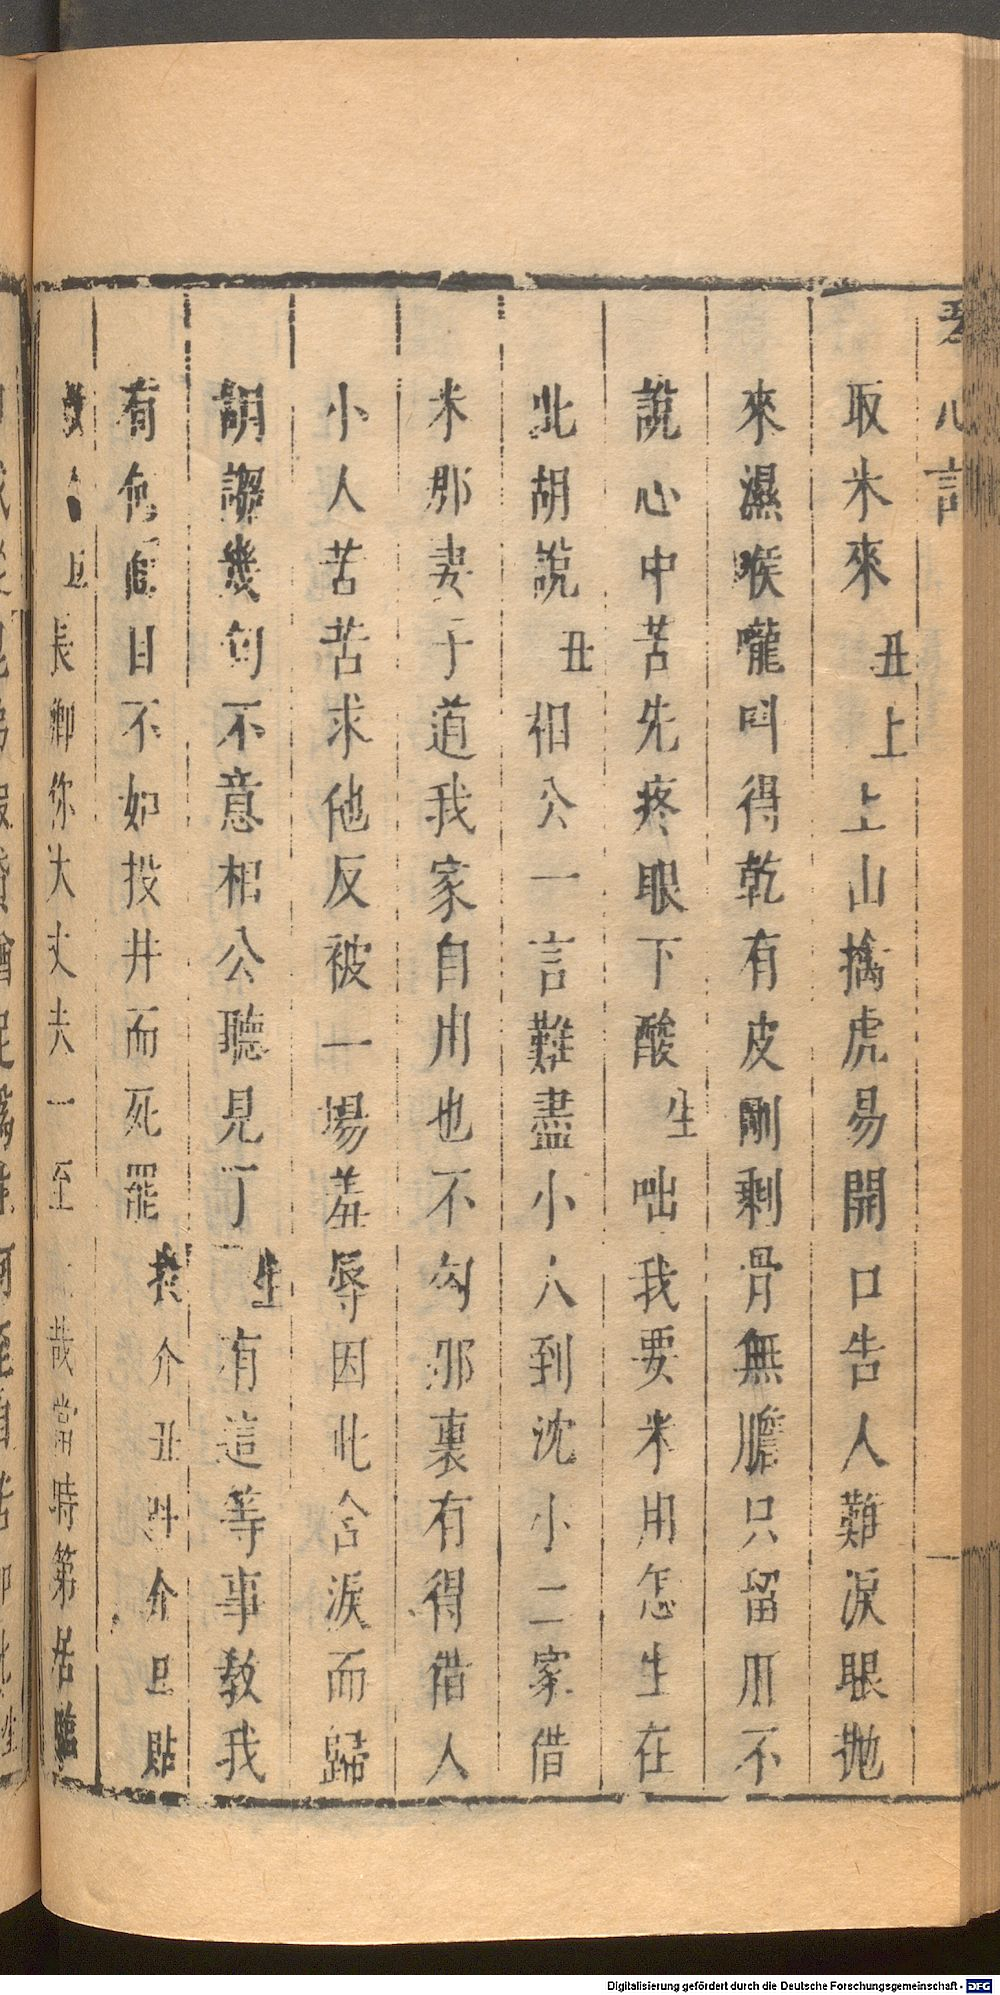 心言
取米來 丑上 上山擒虎易開口告人難淚眼拋
來濕喉嚨叫得乾有皮剛剩骨無膽只留肝不
說心中苦先疼眼下酸 生 咄我要米用怎生在
此胡說 丑 相公一言難盡小人到沈小二家借
米那妻子道我家自用也不勾那裏有得借人
小人苦苦求他反被一場羞辱因此含淚而歸
胡謅幾句不意相公聽見了 生 有這等事教我
有何面目不如投井而死罷 投介 丑 介 旦 貼
旦 長卿你大丈夫一至 哉當時第居臨
Digitalisierung gefördert durch die Deutsche Forschungsgemeinschaft - DFG